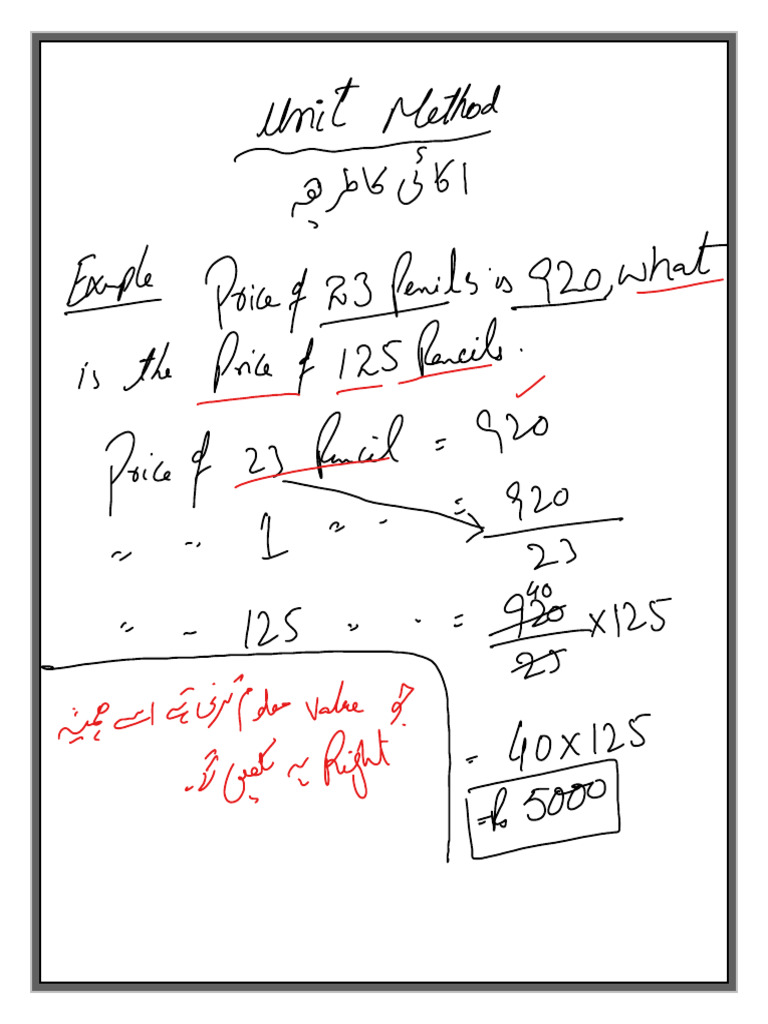 Unit Method
اکائی کا طریقہ
Example Price of 23 Pencils is 920, what
is the Price of 125 Pencils.
Price of 23 Pencil = 920
" " 1 " " = 920/23
" " 125 " " = 920/23 × 125
40
جو value معلوم کرنی ہے اسے ہمیشہ
Right پہ لکھیں گے۔
= 40 × 125
= Rs 5000